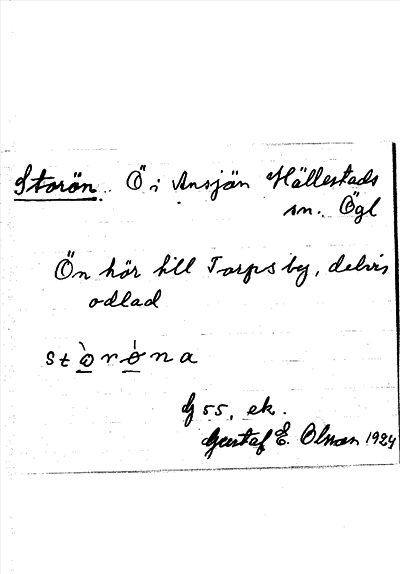 Storön. Ö i Ansjön Hällestads
sn. Ögl
Ön hör till Torps by, delvis
odlad
stòrȯna
G 55, ek.
Gustaf E. Olsson 1924